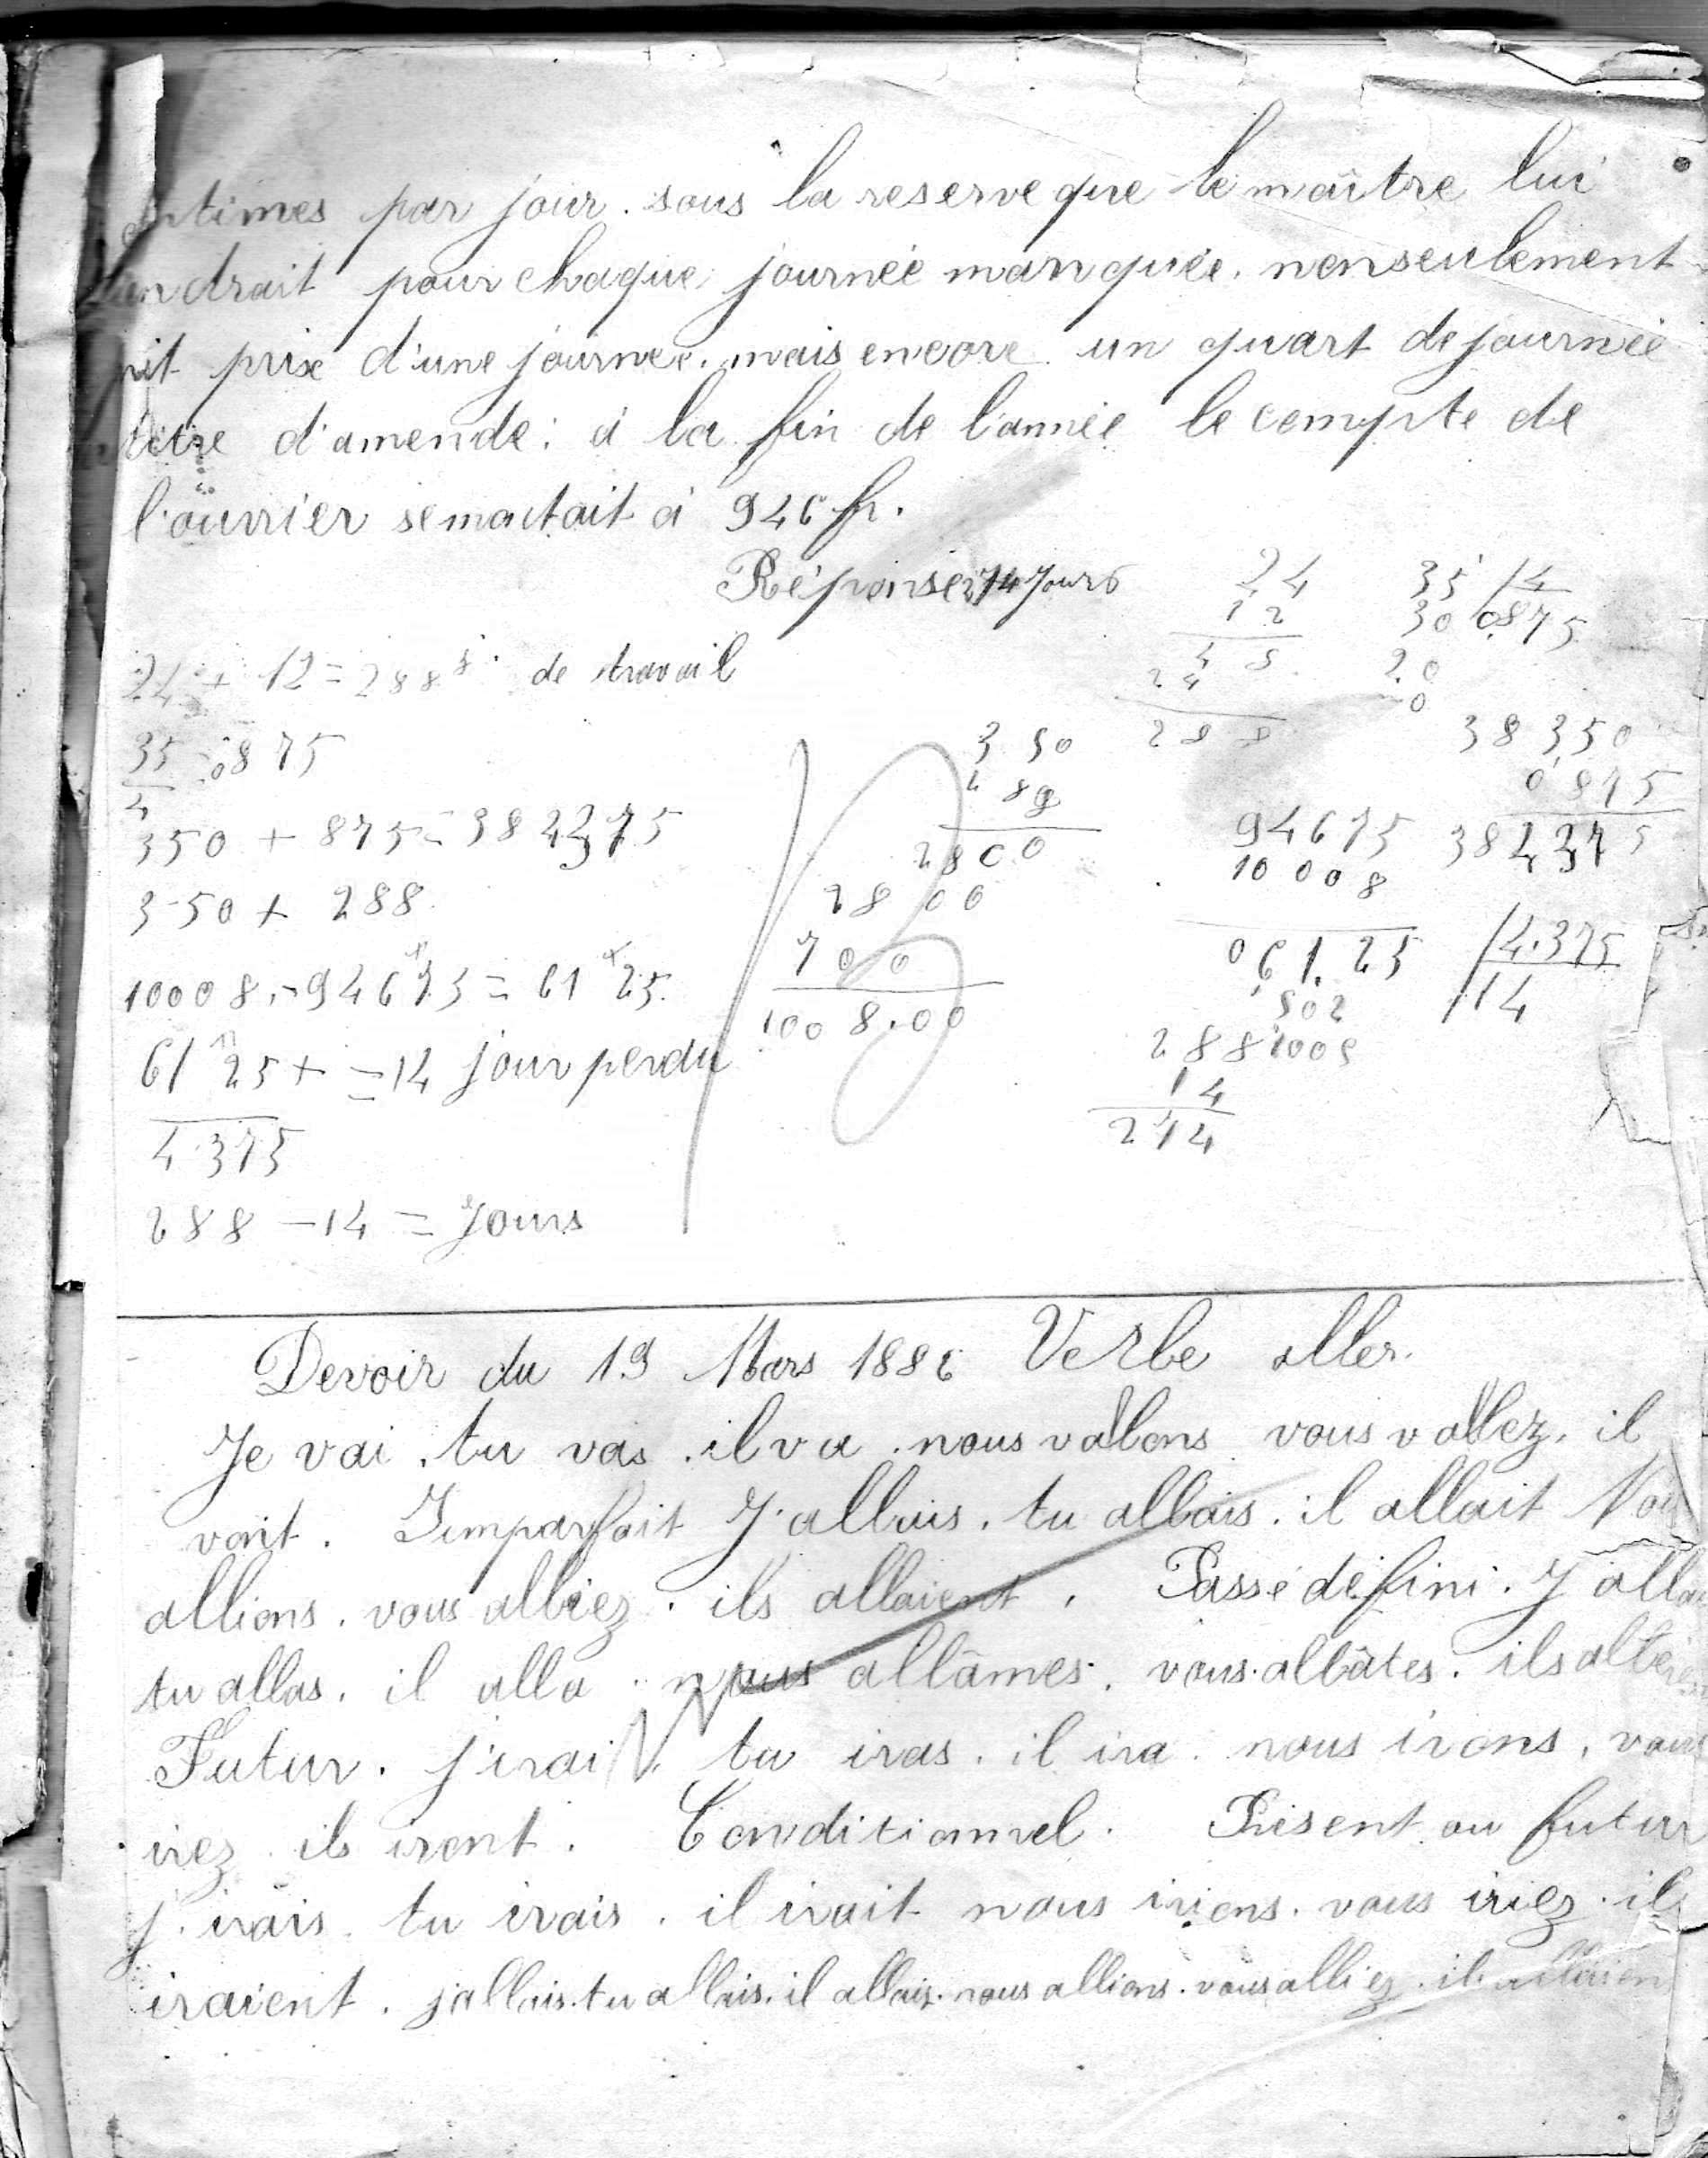 par jour. sous la reserve que le maître lui
pour chaque journée manquée. nonseulement
prix d'une journee. mais encore un quart de journée
titre d'amende: à la fin de l'année le compte de
l'ouvrier semontait à 946 fr.
Réponse 274 Jours
24 + 12 = 288 j. de travail
35 = 0875
4
350 + 875 =
350 + 288
10008. - 94675 = 61 25.
61 25 + = 14 jour perdu
4.375
288 - 14 = Jours
350
288
2800
2800
700
1008.00
24
12
48
24
288
35 /4
30 0875
20
0
38 350
0875
94675
10008
061.25 /4.375
14
288
14
274
Devoir du 19 Mars 1886 Verbe aller.
Je vai. tu vas. il va. nous vallons vous vallez. il
vont. Jimparfait J'allais. tu allais. il allait
allions. vous alliez. ils allaient. Passé défini. J'
tu allas. il alla. nous allâmes. vous allâtes. ils
Futur. j'irai. tu iras. il ira. nous irons, vous
irez. ils iront. Conditionnel. Présent ou futur
j'irais. tu irais. il irait nous irions. vous iriez. ils
iraient. j'allais. tu allais. il allais. nous allions. vous alliez. ils allaien